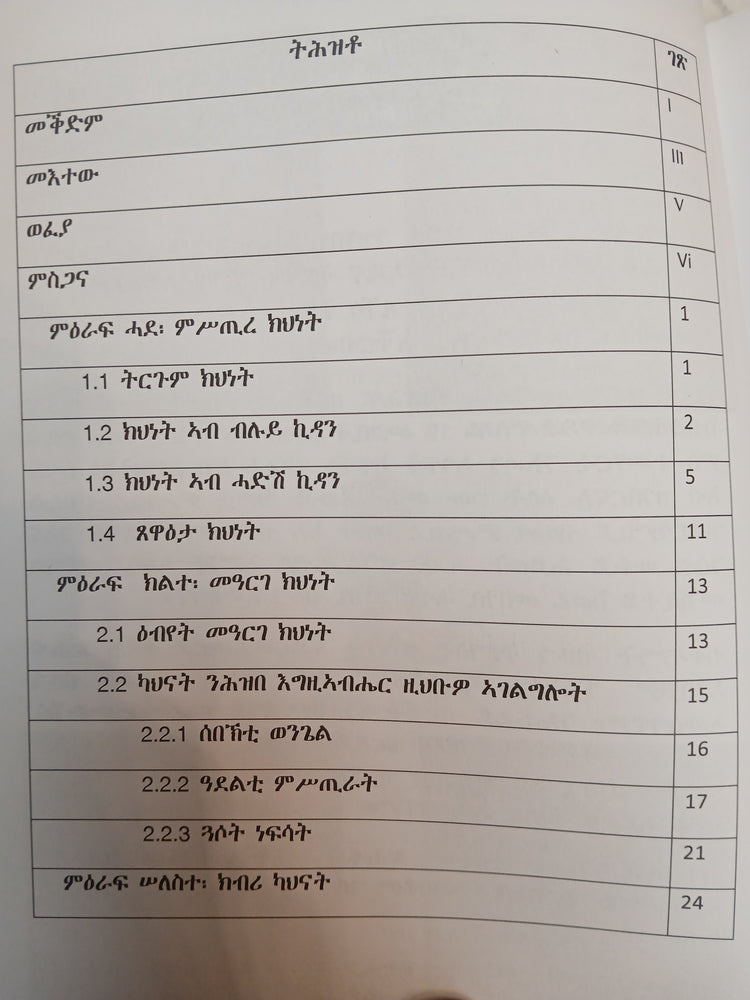 ትሕዝቶ ገጽ
መቕድም I
መእተው III
ወፈያ V
ምስጋና Vi
ምዕራፍ ሓደ፡ ምሥጢረ ክህነት 1
1.1 ትርጉም ክህነት 1
1.2 ክህነት ኣብ ብሉይ ኪዳን 2
1.3 ክህነት ኣብ ሓድሽ ኪዳን 5
1.4 ጸዋዕታ ክህነት 11
ምዕራፍ ክልተ፡ መዓርገ ክህነት 13
2.1 ዕብየት መዓርገ ክህነት 13
2.2 ካህናት ንሕዝበ እግዚኣብሔር ዚህቡዎ ኣገልግሎት 15
2.2.1 ሰበኽቲ ወንጌል 16
2.2.2 ዓደልቲ ምሥጢራት 17
2.2.3 ጓሶት ነፍሳት 21
ምዕራፍ ሠለስተ፡ ክብሪ ካህናት 24